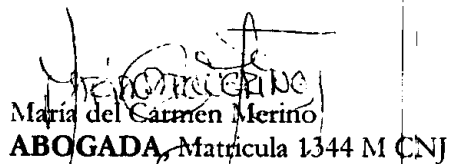 María del Carmen Merino
ABOGADA, Matricula 1344 M CNJ